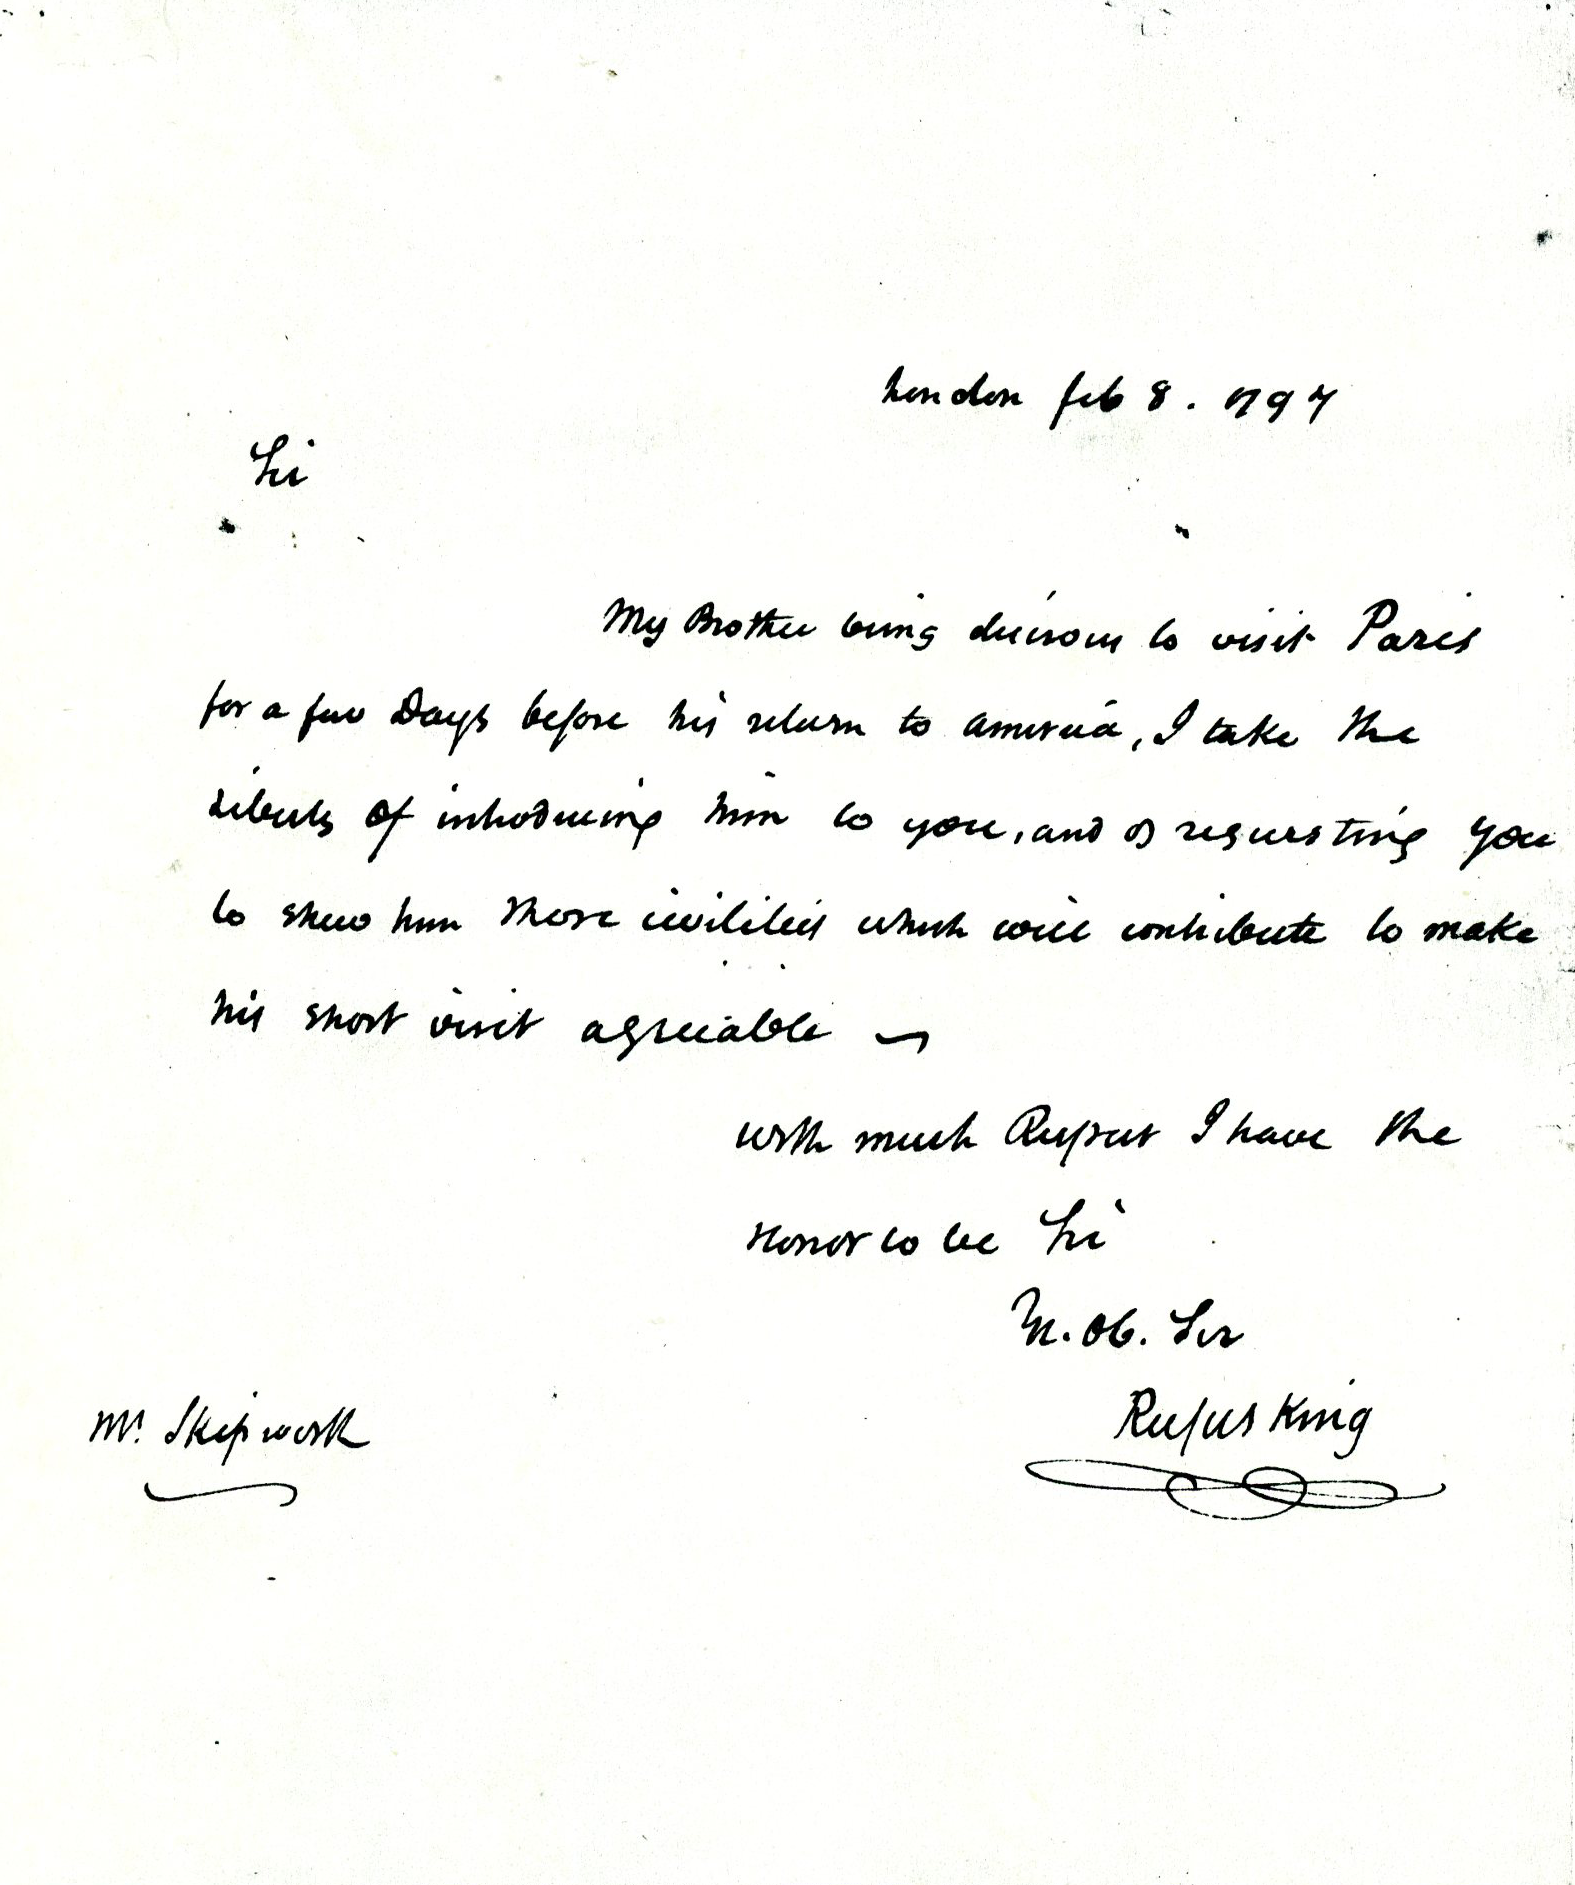 London Feb 8. 1797
Sir
My Brother being desirous to visit Paris
for a few Days before his return to america, I take the
Liberty of introducing him to you, and of requesting you
to shew him those civilities which will contribute to make
his short visit agreeable
with much Respect I have the
Honor to be Sir
Yr. Ob. Ser
Rufus King
Mr. Skipwith